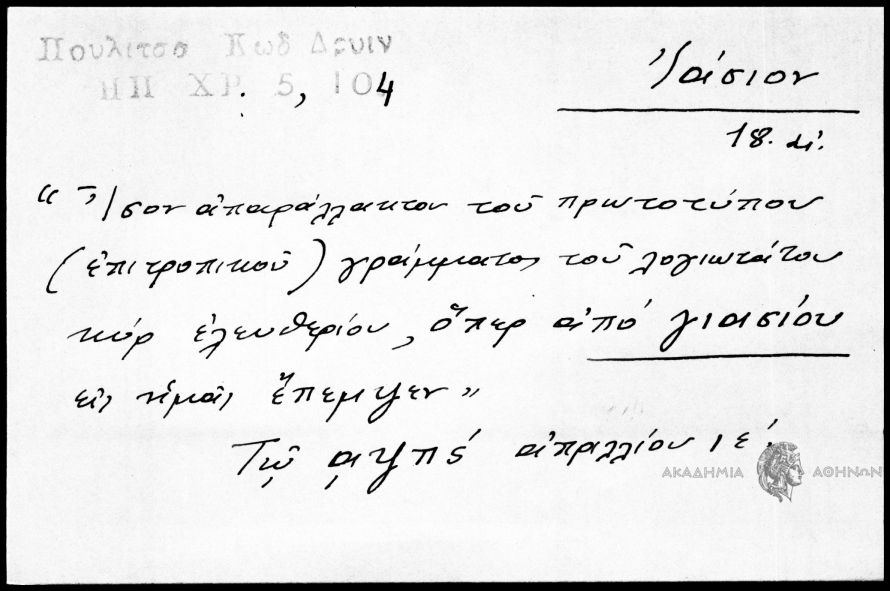 Πουλιτσα Κωδ Δρυιν
ΗΠ ΧΡ. 5, 104
Ἰάσιον
18. αἰ.
“Ἴσον ἀπαράλλακτον τοῦ πρωτοτύπου
(ἐπιτροπικοῦ) γράμματος τοῦ λογιωτάτου
κύρ ἐλευθερίου, ὅπερ ἀπό γιασίου
εἰς ἡμᾶς ἔπεμψεν”
Τῷ ͵αψπέ ἀπριλλίου ιέ.
ΑΚΑΔΗΜΙΑ ΑΘΗΝΩΝ